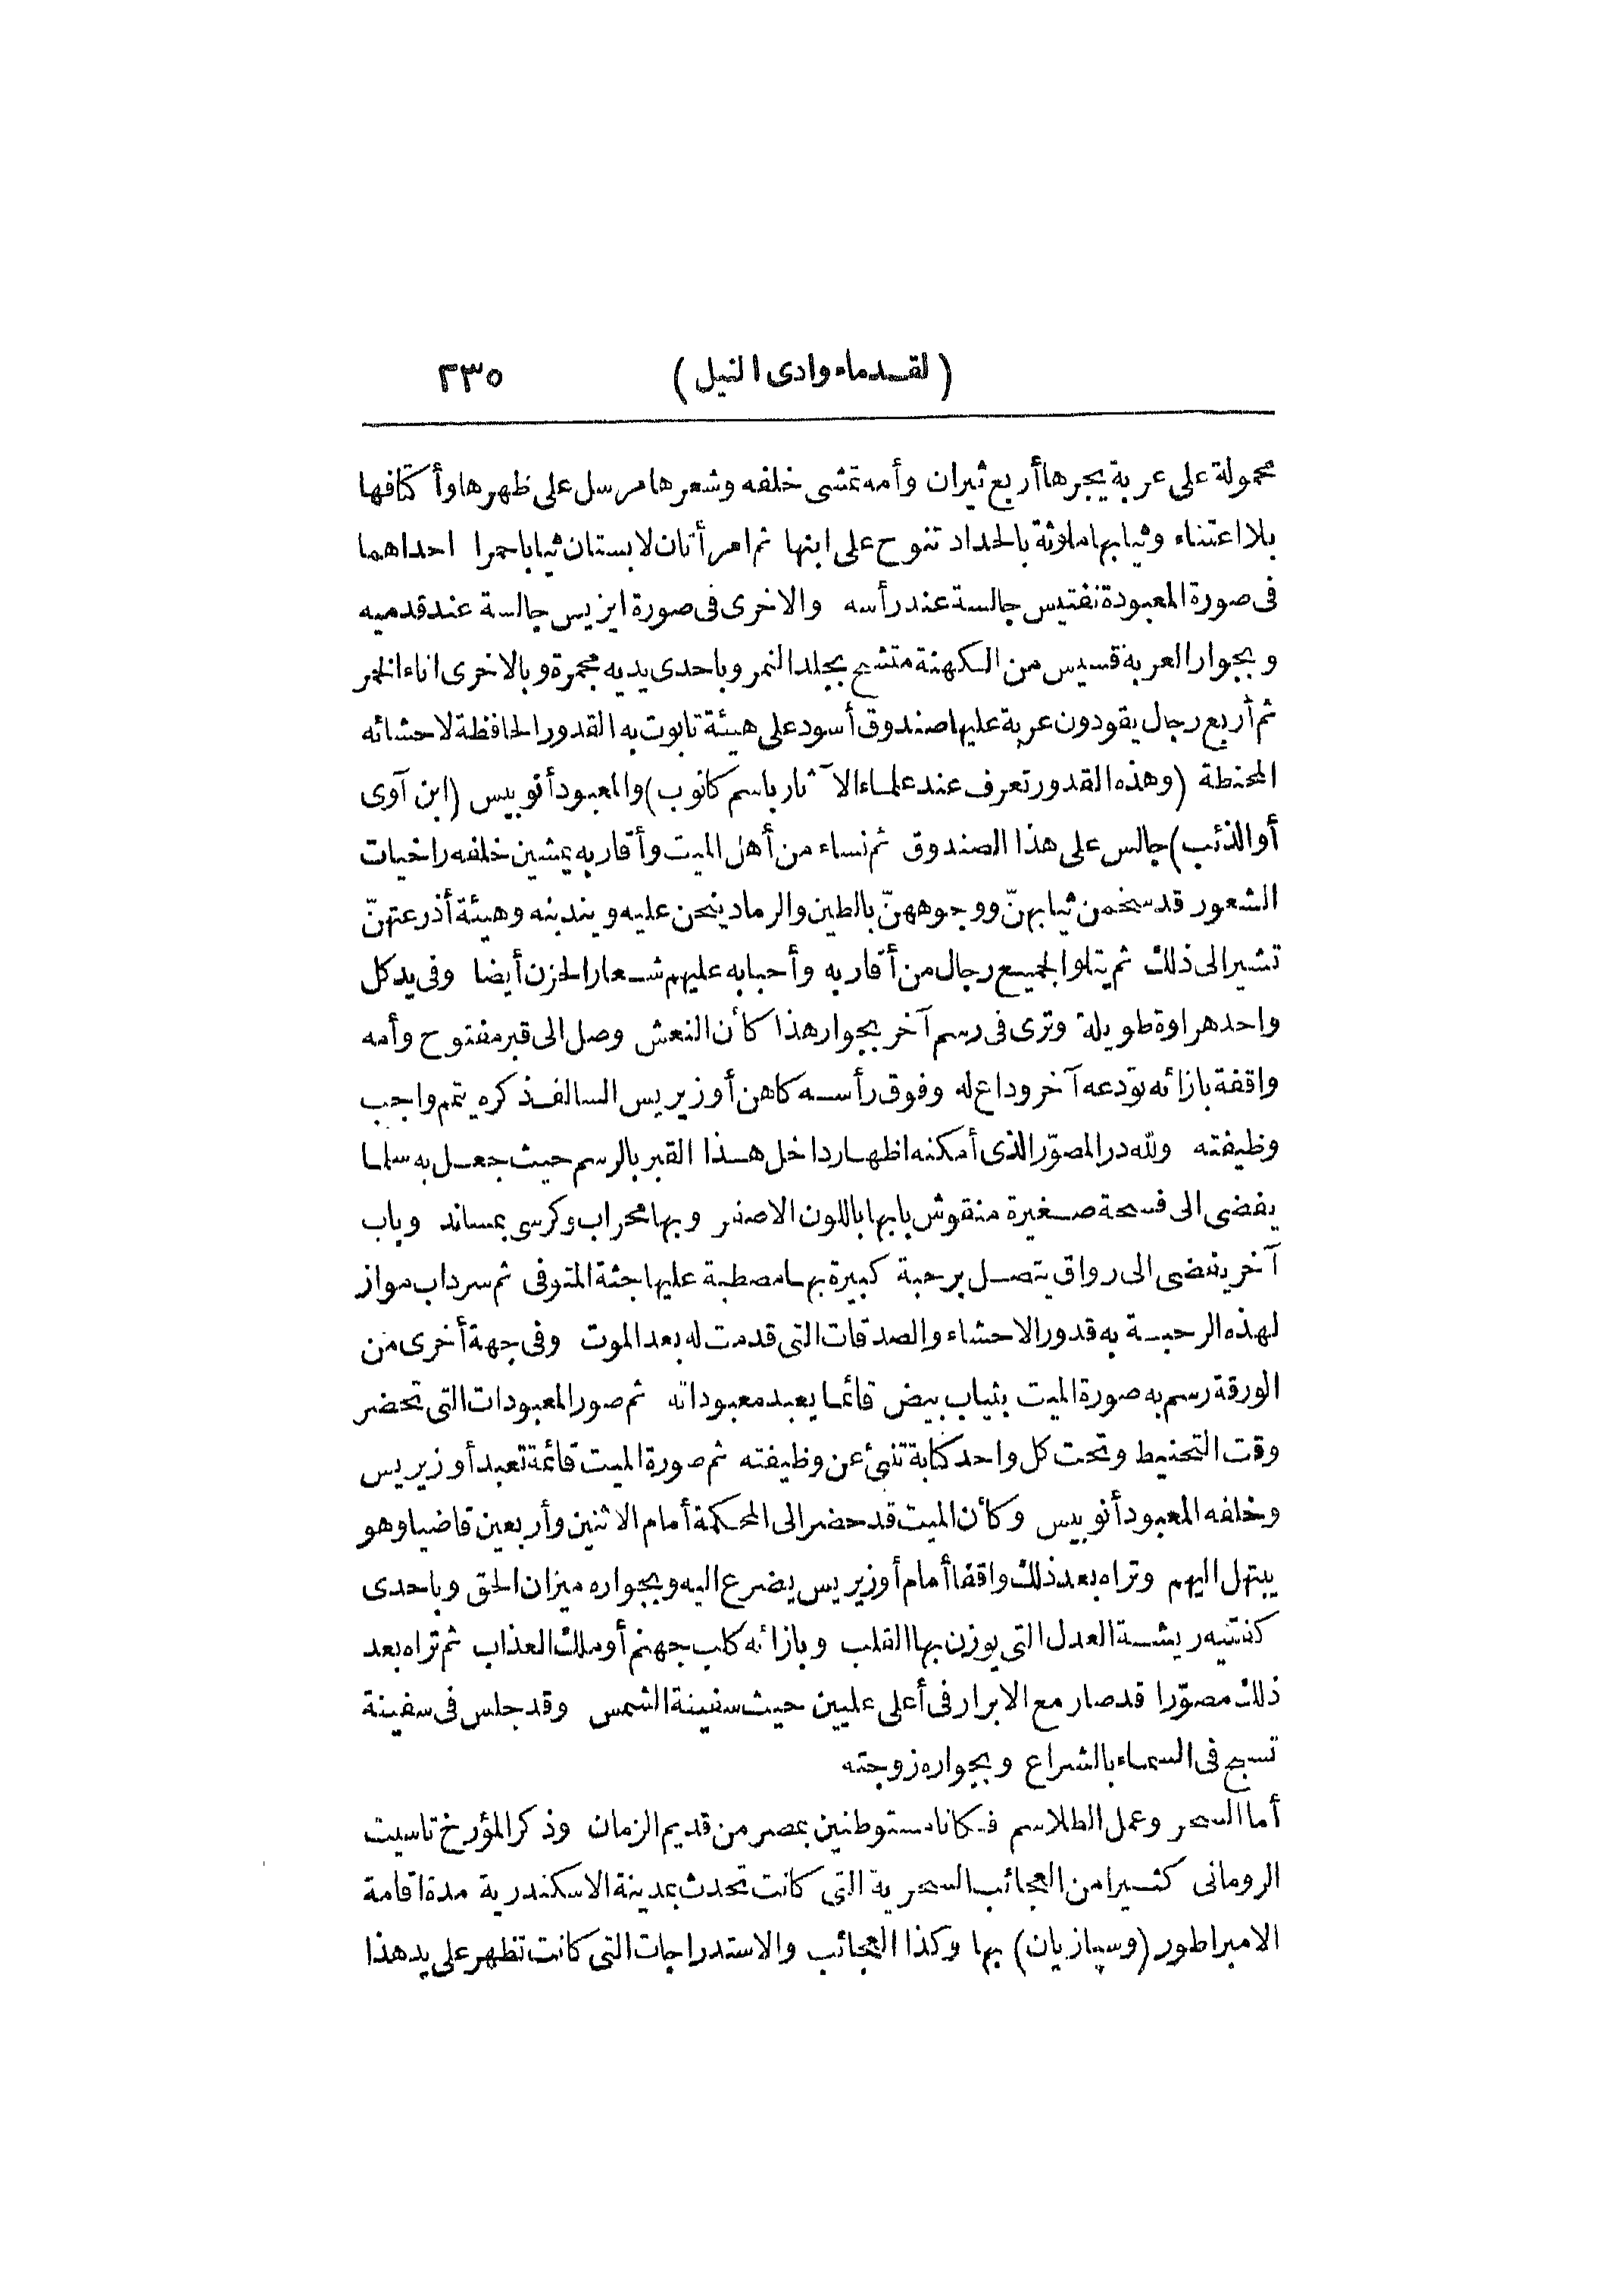 (لقدماء وادى النيل) ٢٣٥
محمولة على عربة يجرها أربع ثيران وأمه تمشى خلفه وشعرها مرسل على ظهرها وأكتافها
بلا اعتناء وثيابها ملوثة بالحداد تنوح على ابنها ثم امرأتان لابستان ثيابا حمرا احداهما
فى صورة المعبودة نفتيس جالسة عند رأسه والاخرى فى صورة ايزيس جالسة عند قدميه
وبجوار العربة قسيس من الكهنة متشح بجلد النمر وباحدى يديه مجمرة وبالاخرى اناء الخمر
ثم أربع رجال يقودون عربة عليها صندوق أسود على هيئة تابوت به القدور الحافظة لاحشائه
المحنطة (وهذه القدور تعرف عند علماء الآثار باسم كانوب) والمعبود أنوبيس (ابن آوى
أو الذئب) جالس على هذا الصندوق ثم نساء من أهل الميت وأقاربه يمشين خلفه راخيات
الشعور قد سخمن ثيابهنّ ووجوههنّ بالطين والرماد ينحن عليه ويندبنه وهيئة أذرعتهنّ
تشير الى ذلك ثم يتلو الجميع رجال من أقاربه وأحبابه عليهم شعار الحزن أيضا وفى يد كل
واحد هراوة طويلة وترى فى رسم آخر بجوار هذا كأن النعش وصل الى قبر مفتوح وأمه
واقفة بازائه تودعه آخر وداع له وفوق رأسه كاهن أوزيريس السالف ذكره يتمم واجب
وظيفته ولله در المصوّر الذى أمكنه اظهار داخل هذا القبر بالرسم حيث جعل به سلما
يفضى الى فسحة صغيرة منقوش بابها باللون الاصفر وبها محراب وكرسى بمساند وباب
آخر يفضى الى رواق يتصل برحبة كبيرة بها مصطبة عليها جثة المتوفى ثم سرداب مواز
لهذه الرحبة به قدور الاحشاء والصدقات التى قدمت له بعد الموت وفى جهة أخرى من
الورقة رسم به صورة الميت بثياب بيض قائما يعبد معبوداته ثم صور المعبودات التى تحضر
وقت التحنيط وتحت كل واحد كتابة تنبئ عن وظيفته ثم صورة الميت قائمة تعبد أوزيريس
وخلفه المعبود أنوبيس وكأن الميت قد حضر الى المحكمة أمام الاثنين وأربعين قاضيا وهو
يبتهل اليهم وتراه بعد ذلك واقفا أمام أوزيريس يضرع اليه وبجواره ميزان الحق وباحدى
كفتيه ريشة العدل التى يوزن بها القلب وبازائه كلب جهنم أو ملك العذاب ثم تراه بعد
ذلك مصوّرا قد صار مع الابرار فى أعلى عليين حيث سفينة الشمس وقد جلس فى سفينة
تسبح فى السماء بالشراع وبجواره زوجته
أما السحر وعمل الطلاسم فكانا مستوطنين بمصر من قديم الزمان وذكر المؤرخ تاسيت
الرومانى كثيرا من العجائب السحرية التى كانت تحدث بمدينة الاسكندرية مدة اقامة
الامبراطور (وسپازيان) بها وكذا العجائب والاستدراجات التى كانت تظهر على يد هذا